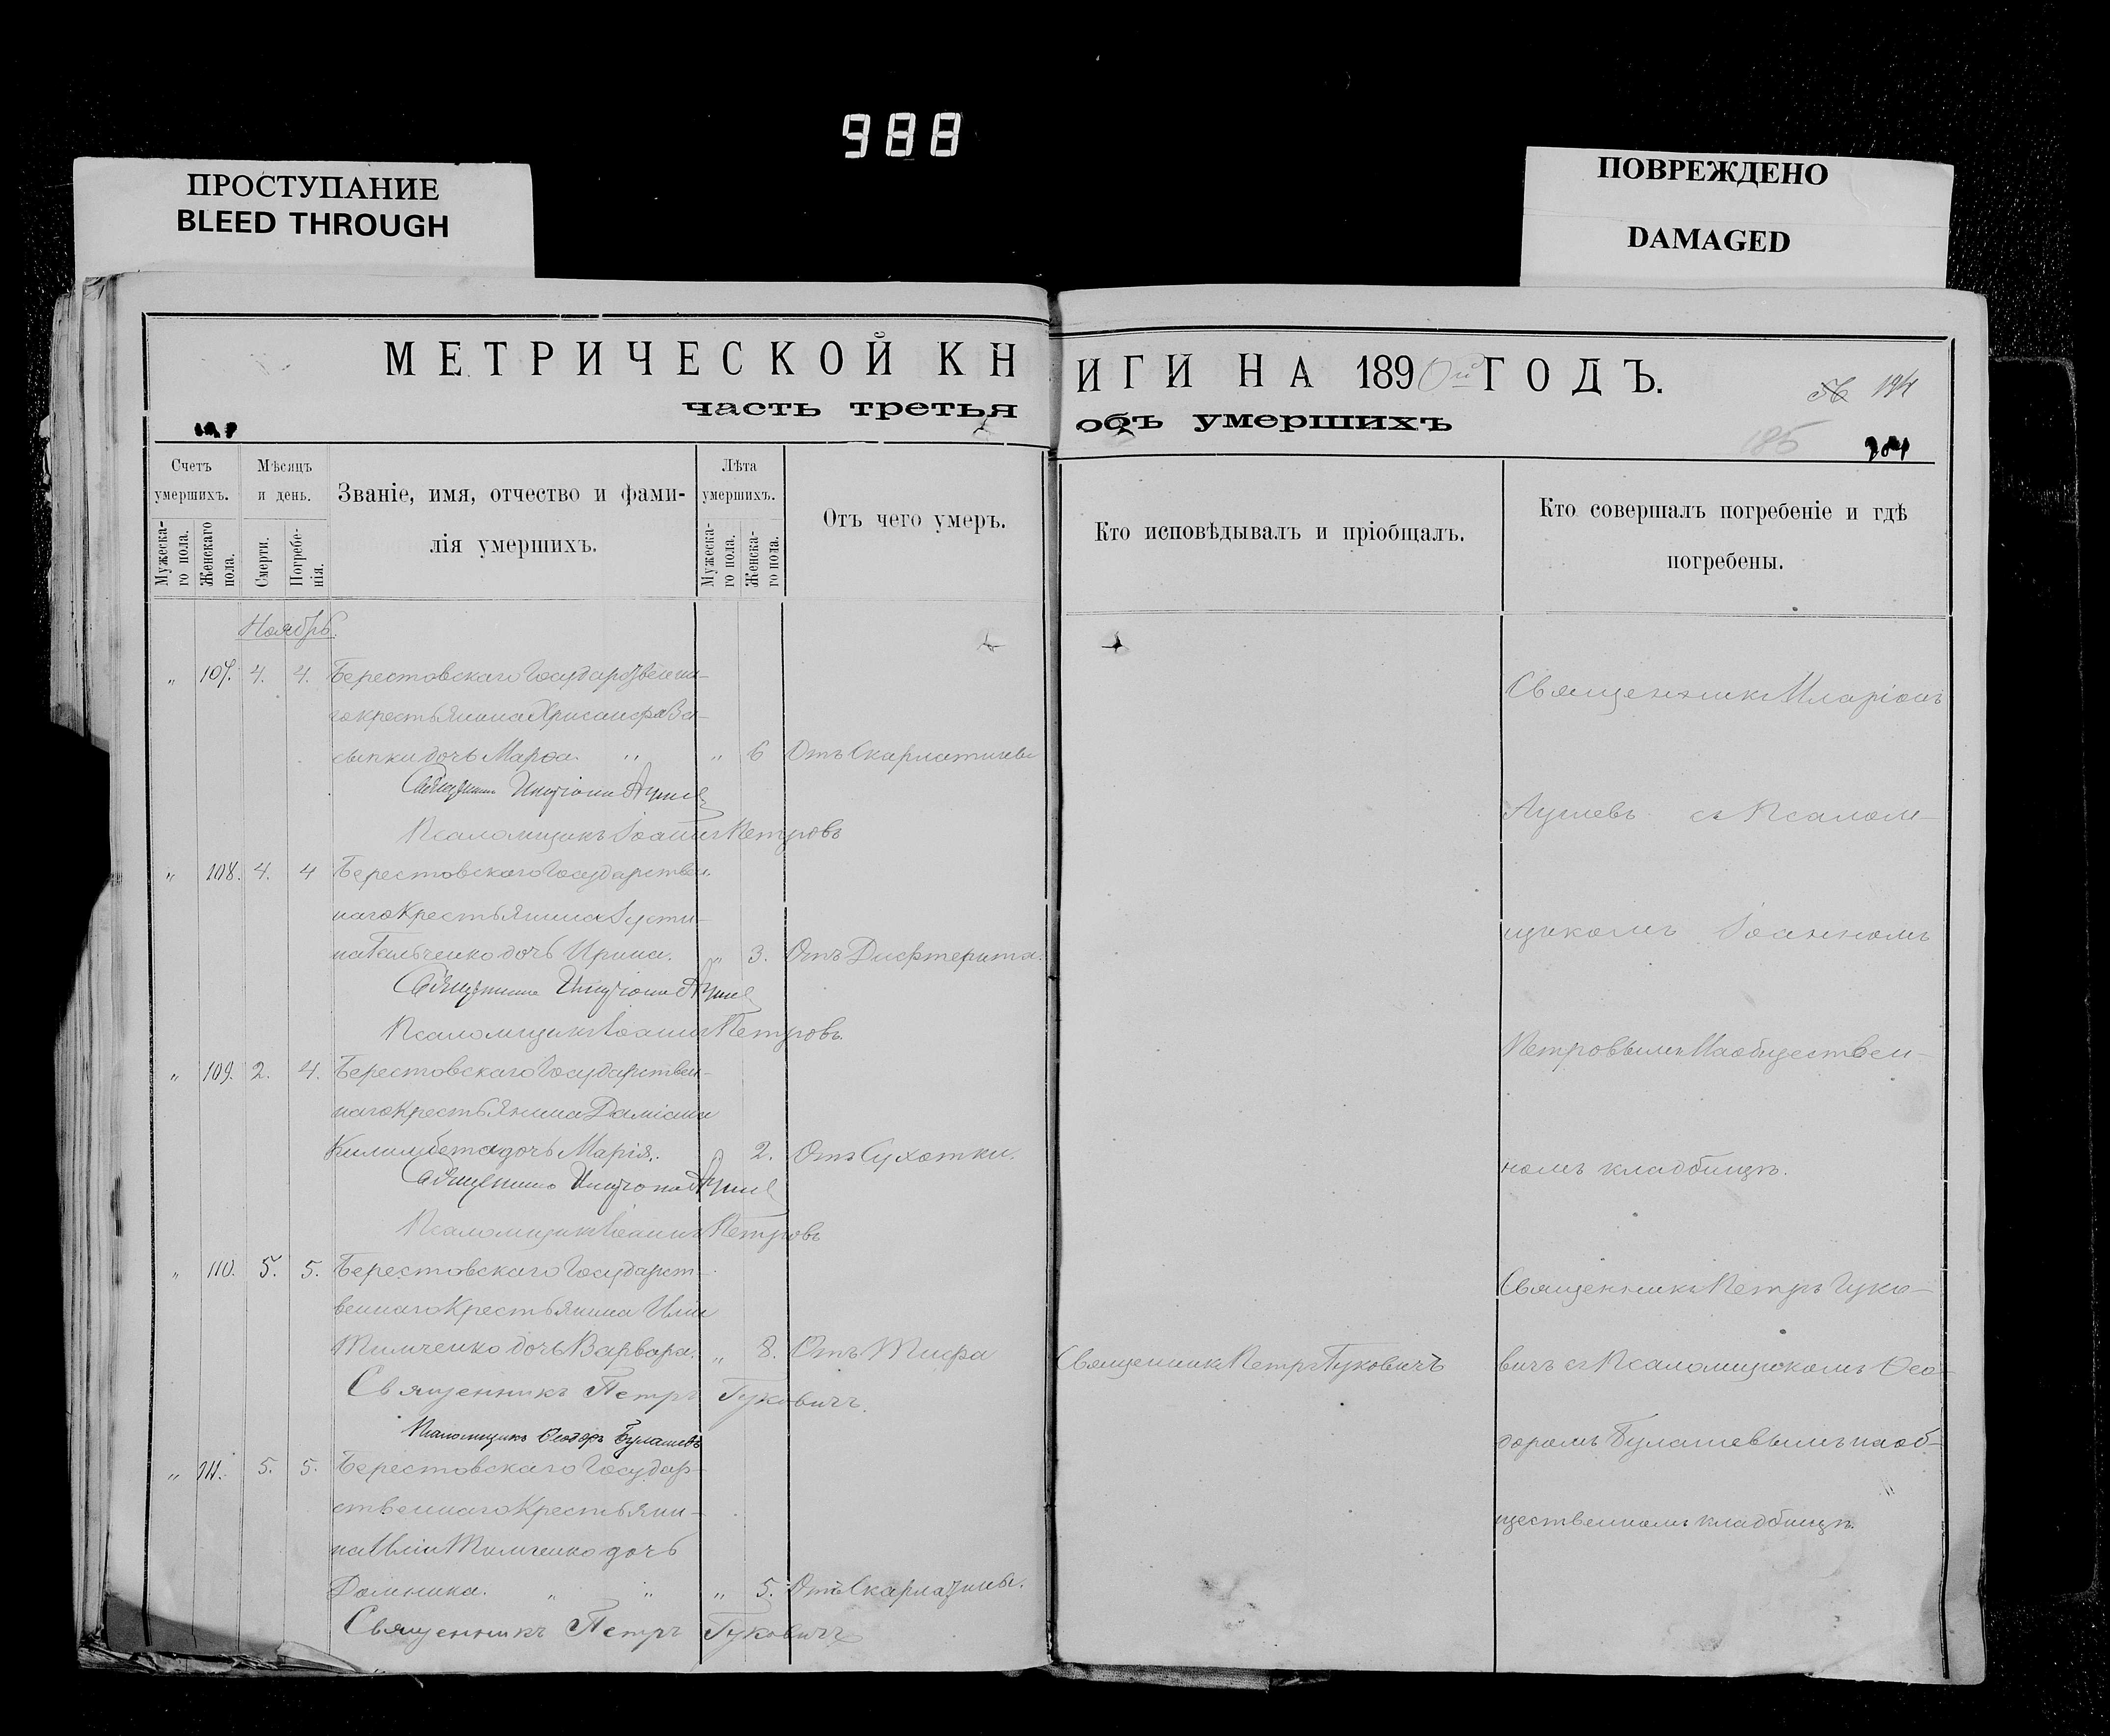 988
ПРОСТУПАНИЕ
BLEED THROUGH
ПОВРЕЖДЕНО
DAMAGED
МЕТРИЧЕСКОЙ КНИГИ НА 1890й ГОДЪ.
часть третья объ умершихъ
185
Счетъ умершихъ.
Мужеска-го пола.
Женскаго пола.
Мѣсяцъ и день.
Смерти.
Погребе-нія.
Званіе, имя, отчество и фами-
лія умершихъ.
Лѣта умершихъ.
Мужеска-го пола.
Женска-го пола.
Отъ чего умеръ.
Кто исповѣдывалъ и пріобщалъ.
Кто совершалъ погребеніе и гдѣ
погребены.
Ноябрь.
„ 107. 4. 4. Берестовскаго Государствен-
крестьянина Хрисанфа
дочь Марфа. „ „ 6 Отъ Скарлатины
Священникъ
Псаломщикъ Іоаннъ Петровъ
„ 108. 4. 4 Берестовскаго Государствен-
наго Крестьянина Іусти-
на Гальченко дочь Ирина. „ 3. Отъ Дифтерита.
Священникъ
Псаломщикъ Іоаннъ Петровъ.
„ 109. 2. 4. Берестовскаго Государствен-
наго Крестьянина Даміана
дочь Марія. 2. Отъ Сухотки.
Священникъ
Псаломщикъ Іоаннъ Петровъ
„ 110. 5. 5. Берестовскаго Государст-
веннаго Крестьянина Иліи
Тимченко дочь Варвара. „ 8. Отъ Тифа
Священникъ Петръ Гуковичъ.
Псаломщикъ Ѳеодоръ Булашевъ
„ 111. 5. 5. Берестовскаго Государ-
ственнаго Крестьяни-
на Иліи Тимченко дочь
Домника. „ „ „ 5. Отъ Скарлатины.
Священникъ Петръ Гуковичъ
Священникъ Петръ Гуковичъ
Священникъ Иларіонъ
съ Псалом-
щикомъ Іоанномъ
Петровымъ На обществен-
номъ кладбищѣ.
Священникъ Петръ Гуко-
вичъ съ Псаломщикомъ Ѳео-
доромъ Булашевымъ на об-
щественномъ кладбищѣ.